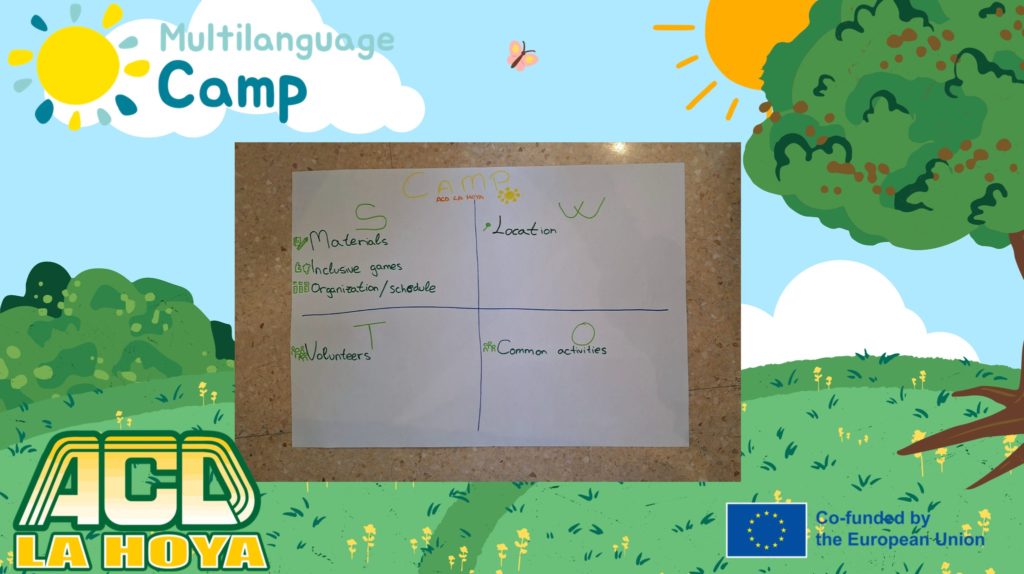 Multilanguage
Camp
CAMP
ACD LA HOYA
S
Materials
Inclusive games
Organization/schedule
W
Location
T
Volunteers
O
Common activities
ACD
LA HOYA
Co-funded by
the European Union